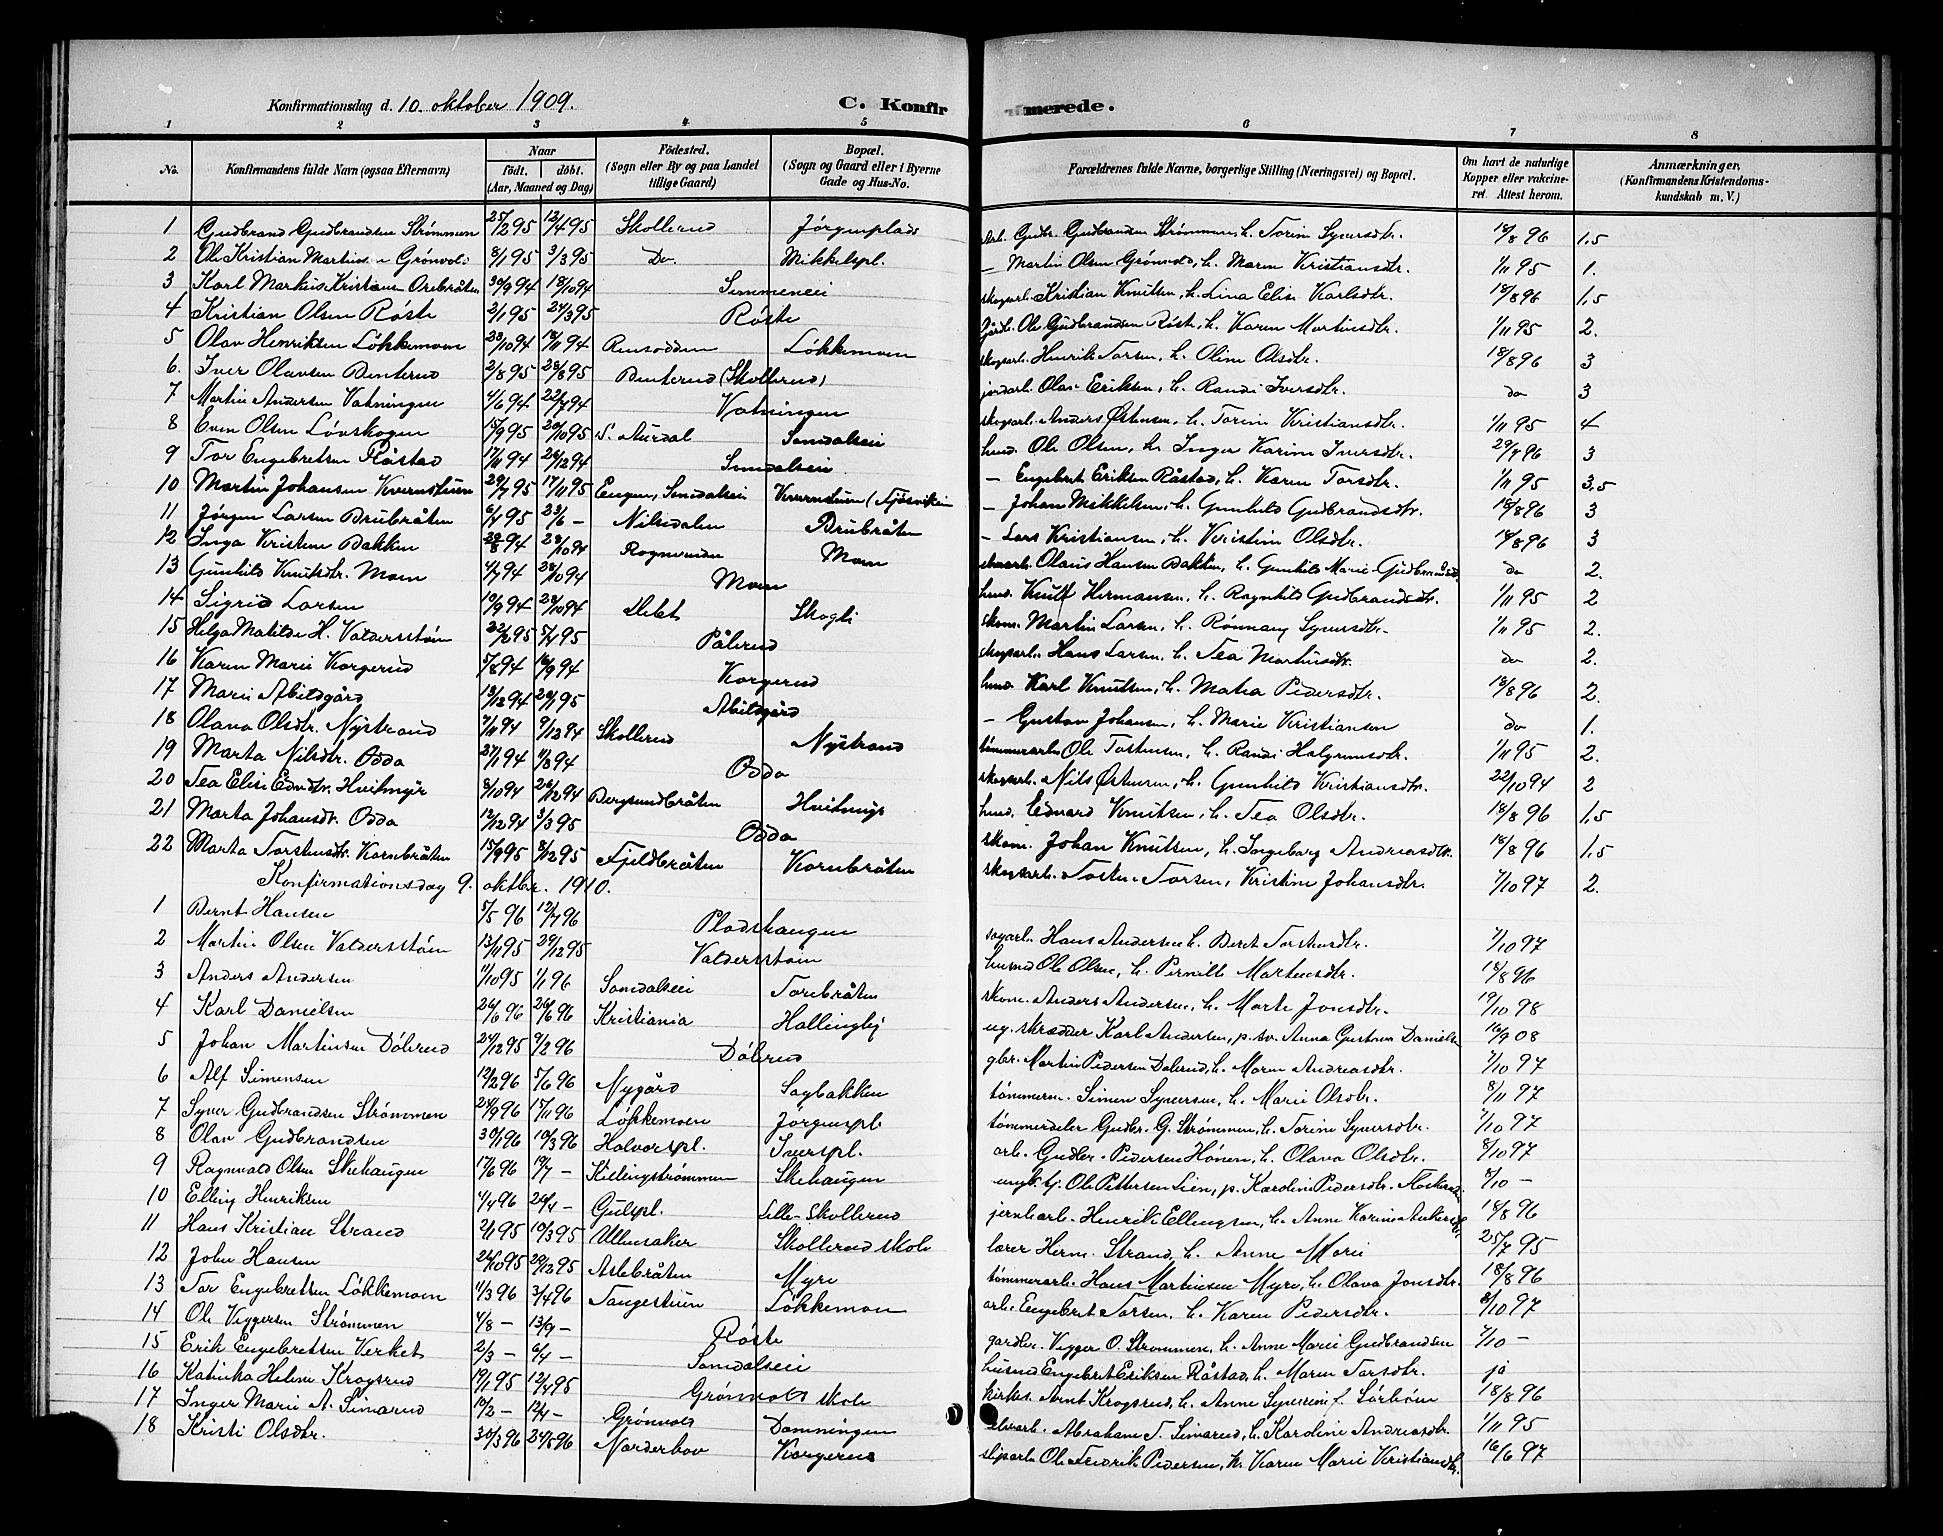 Konfirmationsdag d. 10. oktober 1909. C. Konfirmerede.
1 2 3 4 5 6 7 8
No. Konfirmandens fulde Navn (ogsaa Efternavn) Naar født. døbt. (Aar, Maaned og Dag) Fødested. (Sogn eller By og paa Landet tillige Gaard) Bopæl. (Sogn og Gaard eller i Byerne Gade og Hus-No. Forældrenes fulde Navne, borgerlige Stilling (Næringsvei) og Bopæl. Om havt de naturlige Kopper eller vakcineret. Attest herom. Anmærkninger, (Konfirmandens Kristendomskundskab m. V.)
1 Gudbrand Gudbrandsen Strømmen 25/2 95 12/4 95 Skollerud Jørgenplads arb. Gudbr. Gudbrandsen Strømmen, h. Torine Syversdtr. 18/8 96 1,5
2 Ole Kristian Martinsen Grønvold 8/1 95 3/3 95 Do. Mikkelspl. - Martin Olsen Grønvold, h. Maren Kristiansdtr. 1/11 95 1.
3 Karl Markus Kristiansen Orebråten 30/9 94 18/10 94 Semmeneii skogarb. Kristian Knutsen, h. Lina Elise Karlsdtr. 18/8 96 1,5
4 Kristian Olsen Røste 2/1 95 24/3 95 Røste Ole Gudbrandsen Røste, h. Karen Martinsdtr. 1/11 95 2.
5 Olav Henriksen Løkkemoen 23/10 94 18/11 94 Rensodden Løkkemoen skogarb. Henrik Torsen, h. Oline Olsdtr. 18/8 96 3
6. Iver Olavsen Benterud 2/8 95 28/8 95 Benterud (Skollerud) jordarb. Olav Eriksen, h. Randi Iversdtr. do 3
7 Martin Andersen Vatningen 4/6 94 22/7 94 Vatningen skogarb. Anders Østensen, h. Torine Kristiansdtr. 1/11 95 4
8 Even Olsen Løvskogen 15/9 95 20/10 95 S. Aurdal Somdalseii husm. Ole Olsen, h. Inger Karine Iversdtr. 29/7 96 3
9 Tor Engebretsen Råstad 17/11 94 26/12 94 Somdalseii - Engebret Eriksen Råstad, h. Karen Torsdtr. 1/11 95 3,5
10 Martin Johansen Kvernstuen 29/7 95 17/11 95 Engen, Somdalseii Kvernstuen (Fjøsviken - Johan Mikkelsen, h. Gunhild Gudbrandsdtr. 18/8 96 3
11 Jørgen Larsen Brubråten 6/4 95 23/6 - Nilsdalen Brubråten - Lars Kristiansen, h. Kristine Olsdtr. 18/8 96 3
12 Inga Kristine Bakken 29/8 94 28/10 94 Rognmoen Moen Olaus Hansen Bakken, h. Gunhild Marie Gudbrandsd. do 2.
13 Gunhild Knutsdtr. Moen 4/7 94 28/10 94 Moen husm. Knut Hermansen, h. Ragnhild Gudbrandsdtr. 1/11 95 2
14 Sigrid Larsen 10/9 94 28/10 94 Skogli skom. Martin Larsen, h. Rønnaug Syversdtr. 1/11 95 2.
15 Helga Matilde H. Valdersstøen 22/2 95 5/4 95 Pålerud skogarb. Hans Larsen, h. Tea Martinsdtr. do 2.
16 Karen Marie Korgerud 5/8 94 16/9 94 Korgerud husm. Karl Knutsen, h. Matea Pedersdtr. 18/8 96 2.
17 Marie Abildsgård 13/12 94 20/1 95 Abildsgård - Gustav Johansen, h. Marie Kristiansen do 1.
18 Olava Olsdtr. Nystrand 7/11 94 9/12 94 Skollerud Nystrand tømmerarb. Ole Tostensen, h. Randi Halgrimsdtr. 1/11 95 2.
19 Marta Nilsdtr. Odda 27/1 94 4/3 94 Odda skogarb. Nils Østensen, h. Gunhild Kristiansdtr. 22/10 94 2
20 Tea Elise Edvdtr. Hvitmyr 8/10 94 26/12 94 Bergsundbråten Hvitmyr husm. Edvard Knutsen, h. Tea Olsdtr. 18/8 96 1,5
21 Marta Johansdtr. Odda 12/12 94 3/3 95 Odda skom. Johan Knutsen, h. Ingeborg Andreasdtr. 18/8 96 1,5
22 Marta Torstensdtr. Kornbråten 15/9 95 8/12 95 Fjeldbråten Kornbråten skogarb. Tosten Torsen, Kristine Johansdtr. 7/10 97 2.
Konfirmationsdag 9. oktbr. 1910.
1 Bernt Hansen 5/5 96 12/7 96 Pladshaugen sagarb. Hans Andersen h. Beret Torstensdtr. 7/10 97
2 Martin Olsen Valdersstøen 13/11 95 29/12 95 Valdersstøen husmd Ole Olsen, h. Pernille Martinsdtr. 18/8 96
3 Anders Andersen 11/10 95 1/1 96 Somdalseii Torebråten skom. Anders Andersen, h. Marte Jonsdtr. 19/10 98
4 Karl Danielsen 26/6 96 26/6 96 Kristiania Hallingby ug. skrædder Karl Andersen, p. sv. Anna Gustava Danielsen 16/9 08
5 Johan Martinsen Dølerud 24/12 95 9/2 96 Dølerud gbr. Martin Pedersen Dølerud, h. Maren Andreasdtr. 7/10 97
6 Alf Simensen 12/2 96 5/6 96 Nygård Sagbakken tømmerm. Simen Syversen, h. Marie Olsdtr. 8/11 97
7 Syver Gudbrandsen Strømmen 24/9 96 15/11 96 Løkkemoen Jørgenspl. tømmerdeler Gudbr. G. Strømmen, h. Torine Syversdtr. 7/10 97
8 Olav Gudbrandsen 30/1 96 10/3 96 Halvorspl. Iverspl. arb. Gudbr. Pedersen Hønen, h. Olava Olsdtr. 8/10 97
9 Ragnvald Olsen Skehaugen 17/6 96 19/7 - Killingstrømmen Skehaugen ungk. tj. Ole Pettersen Lien, p. Karoline Pedersdtr. 8/10 -
10 Elling Henriksen 4/4 96 24/4 - Gulspl. Lille-Skollerud jernb.arb. Henrik Ellingsen, h. Anne Karine 18/8 96
11 Hans Kristian Strand 2/1 95 10/3 95 Ullensaker Skollerud skole lærer Herm. Strand, h. Anne Marie 25/7 95
12 John Hansen 24/10 95 29/12 95 Aslebråten Myre tømmerarb. Hans Martinsen Myre, h. Olava Jonsdtr. 18/8 96
13 Tor Engebretsen Løkkemoen 4/3 96 3/4 96 Tangestuen Løkkemoen arb. Engebret Torsen, h. Karen Pedersdtr. 8/10 97
14 Ole Viggersen Strømmen 4/8 - 13/9 - Røste gardbr. Vigger O. Strømmen, h. Anne Marie Gudbrandsen 7/10 -
15 Erik Engebretsen Verket 2/3 - 6/4 - Somdalseii husmd Engebret Eriksen Råstad, h. Maren Torsdtr. ja
16 Katinka Helene Krogsrud 19/1 95 12/4 95 Grønvold skole kirkes. Arnt Krogsrud, h. Anne Syversine f. Sørbøen 18/8 96
17 Inger Marie A. Simarud 10/2 - 12/4 - Grønvold Damningen elvearb. Abraham T. Simarud, h. Karoline Andreasdtr. 1/11 95
18 Kristi Olsdtr. 30/3 96 24/5 96 Norderhov Korgerud sliparb. Ole Fredrik Pedersen, h. Karen Marie Kristiansdtr. 16/6 97